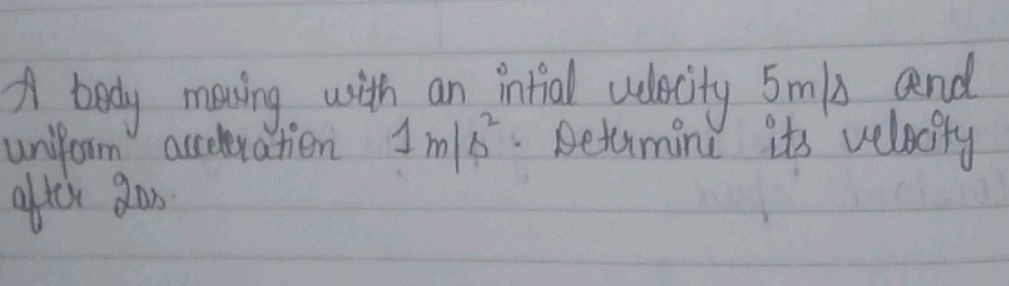 A body moving with an intial velocity 5m/s and
uniform acceleration 1 m/s². Determine its velocity
after 20s.